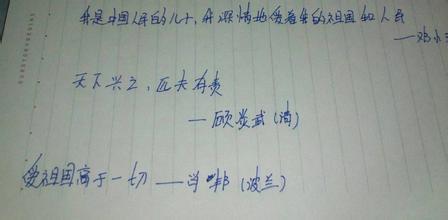 我是中国人民的儿子,我深情地爱着我的祖国和人民
——邓小
天下兴亡,匹夫有责
——顾炎武(清)
爱祖国高于一切——肖邦(波兰)